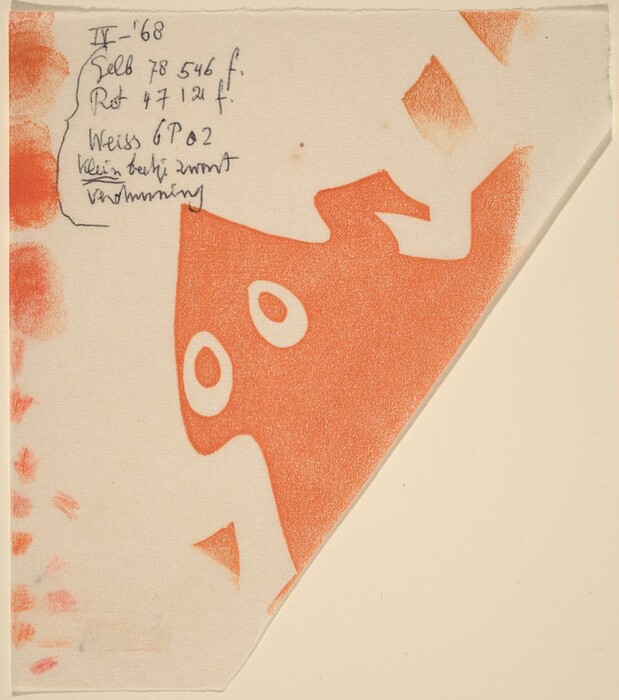 IV-'68
Gelb 78 546 f.
Rot 47 121 f.
Weiss 6P02
Klein beetje zwart
verdunning